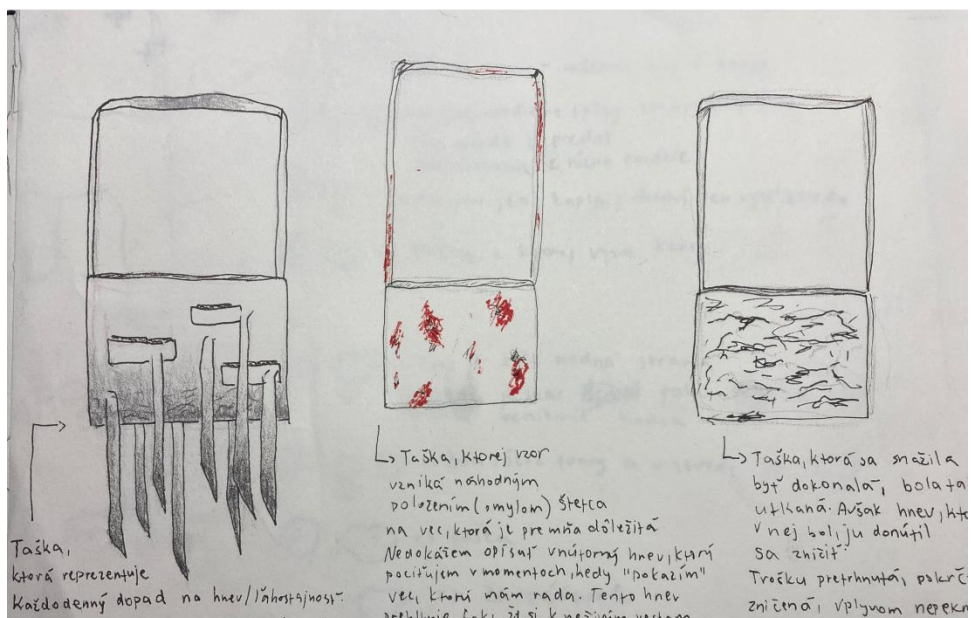 Taška,
ktorá reprezentuje
Každodenný dopad na hnev/ľahostajnosť.
Taška, ktorej vzor
vzniká náhodným
položením (omylom) štetca
na vec, ktorá je pre mňa dôležitá
Nedokážem opísať vnútorný hnev, ktorý
pociťujem v momentoch, kedy "pokazím"
vec, ktorú mám rada. Tento hnev
že si k neživým
Taška, ktorá sa snažila
byť dokonalá, bola ta
utkaná. Avšak hnev, kto
v nej bol, ju donútil
sa zničiť
Trošku pretrhnutá, pokrč
zničená, vplyvom nepekn